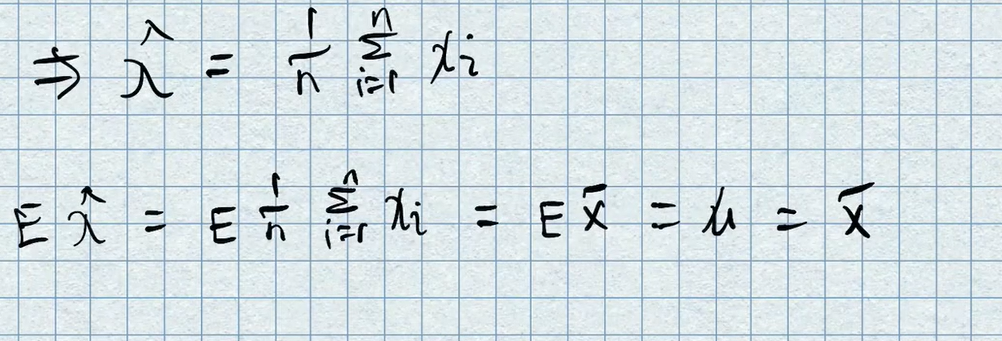 ⇒ λ̂ = 1/n Σ_{i=1}^{n} xi
E λ̂ = E 1/n Σ_{i=1}^{n} xi = E x̄ = μ = x̄